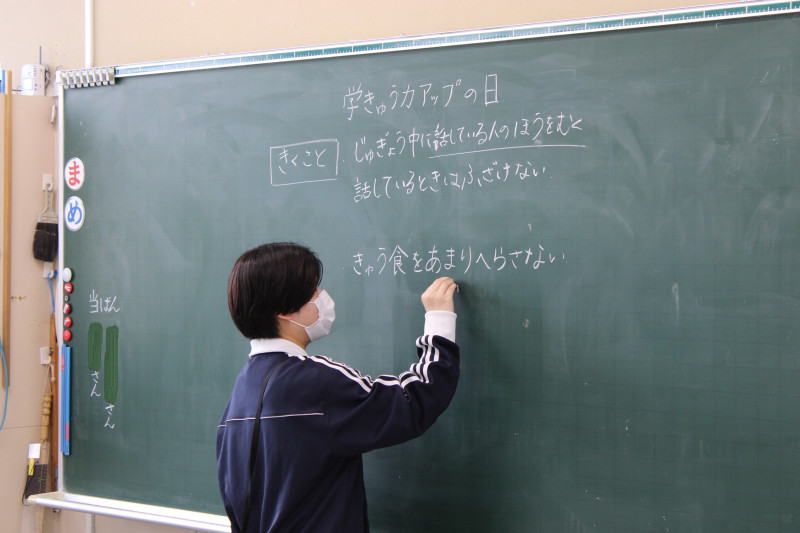 学きゅう力アップの日
きくこと ・じゅぎょう中に話している人のほうをむく
話しているときは、ふざけない
・きゅう食をあまりへらさない
ま
め
当ばん
さん
さん